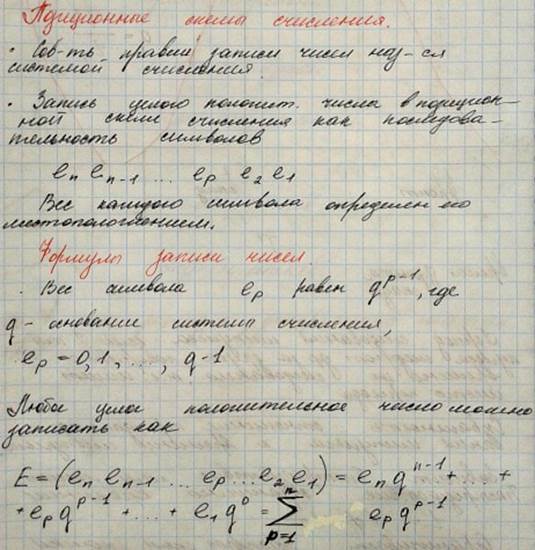 Позиционные схемы счисления.
· Сов-ть правил записи чисел наз-ся
системой счисления.
· Запись целого положит. числа в позицион-
ной схеме счисления как последова-
тельность символов
eₙ eₙ₋₁ ... eₚ e₂ e₁
Вес каждого символа определен его
местоположением.
Формулы записи чисел.
· Вес символа eₚ равен q^{p-1}, где
q - основание системы счисления,
eₚ = 0, 1, ..., q-1
Любое целое положительное число можно
записать как
E = (eₙ eₙ₋₁ ... eₚ ... e₂ e₁) = eₙ q^{n-1} + ... +
+ eₚ q^{p-1} + ... + e₁ q⁰ = ∑_{p=1}^{n} eₚ q^{p-1}